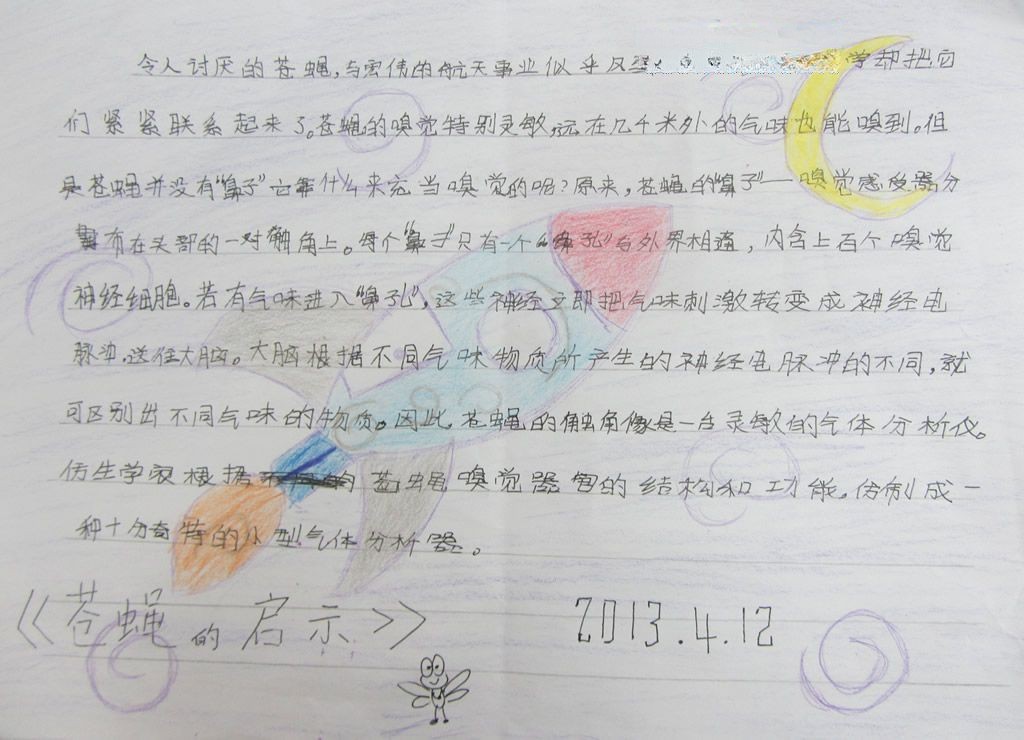 令人讨厌的苍蝇,与宏伟的航天事业似乎风 学却把它
们紧紧联系起来了。苍蝇的嗅觉特别灵敏,远在几千米外的气味也能嗅到。但
是苍蝇并没有“鼻子”它靠什么来充当嗅觉的呢?原来,苍蝇的“鼻子”——嗅觉感受器分
布在头部的一对触角上。每个“鼻子”只有一个“鼻孔”与外界相通,内含上百个嗅觉
神经细胞。若有气味进入“鼻孔”,这些神经立即把气味刺激转变成神经电
脉冲,送往大脑。大脑根据不同气味物质所产生的神经电脉冲的不同,就
可区别出不同气味的物质。因此,苍蝇的触角像是一台灵敏的气体分析仪。
仿生学家根据苍蝇嗅觉器官的结构和功能,仿制成一
种十分奇特的小型气体分析器。
《苍蝇的启示》 2013.4.12